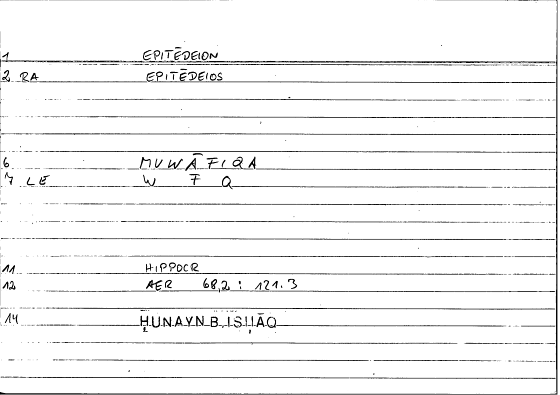 1 EPITĒDEION
2 RA EPITĒDEIOS
6 MUWĀFIQA
7 LE W F Q
11 HIPPOCR
12 AER 68,2 : 121.3
14 ḤUNAYN B. ISḤĀQ